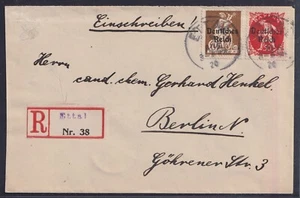 Einschreiben!
Deutsches
Reich
Deutsches
Reich
Herrn
cand. chem. Gerhard Henkel,
R
Ettal
Nr. 38
Berlin N.
Göhrener Str. 3